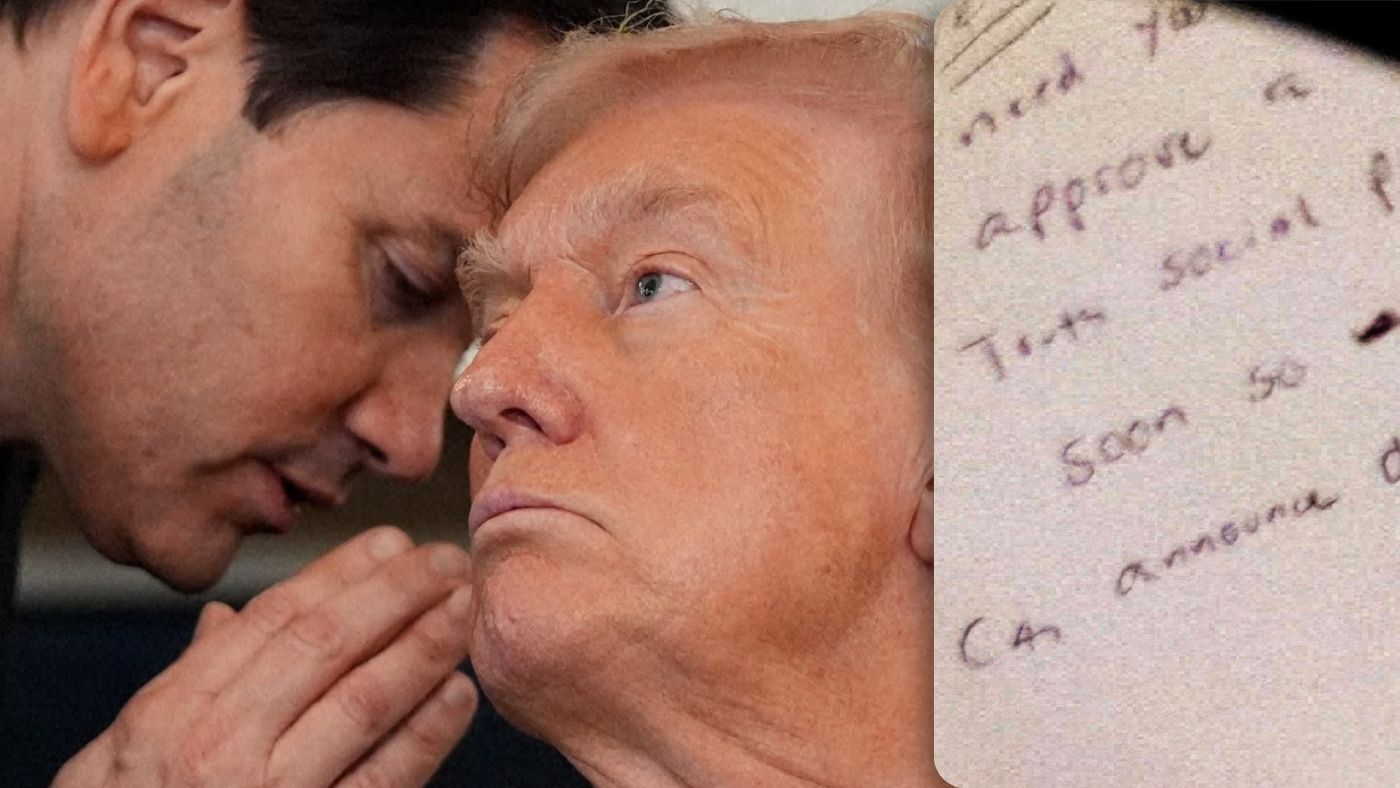 need you
approve a
Truth social P
soon so
Can announce d